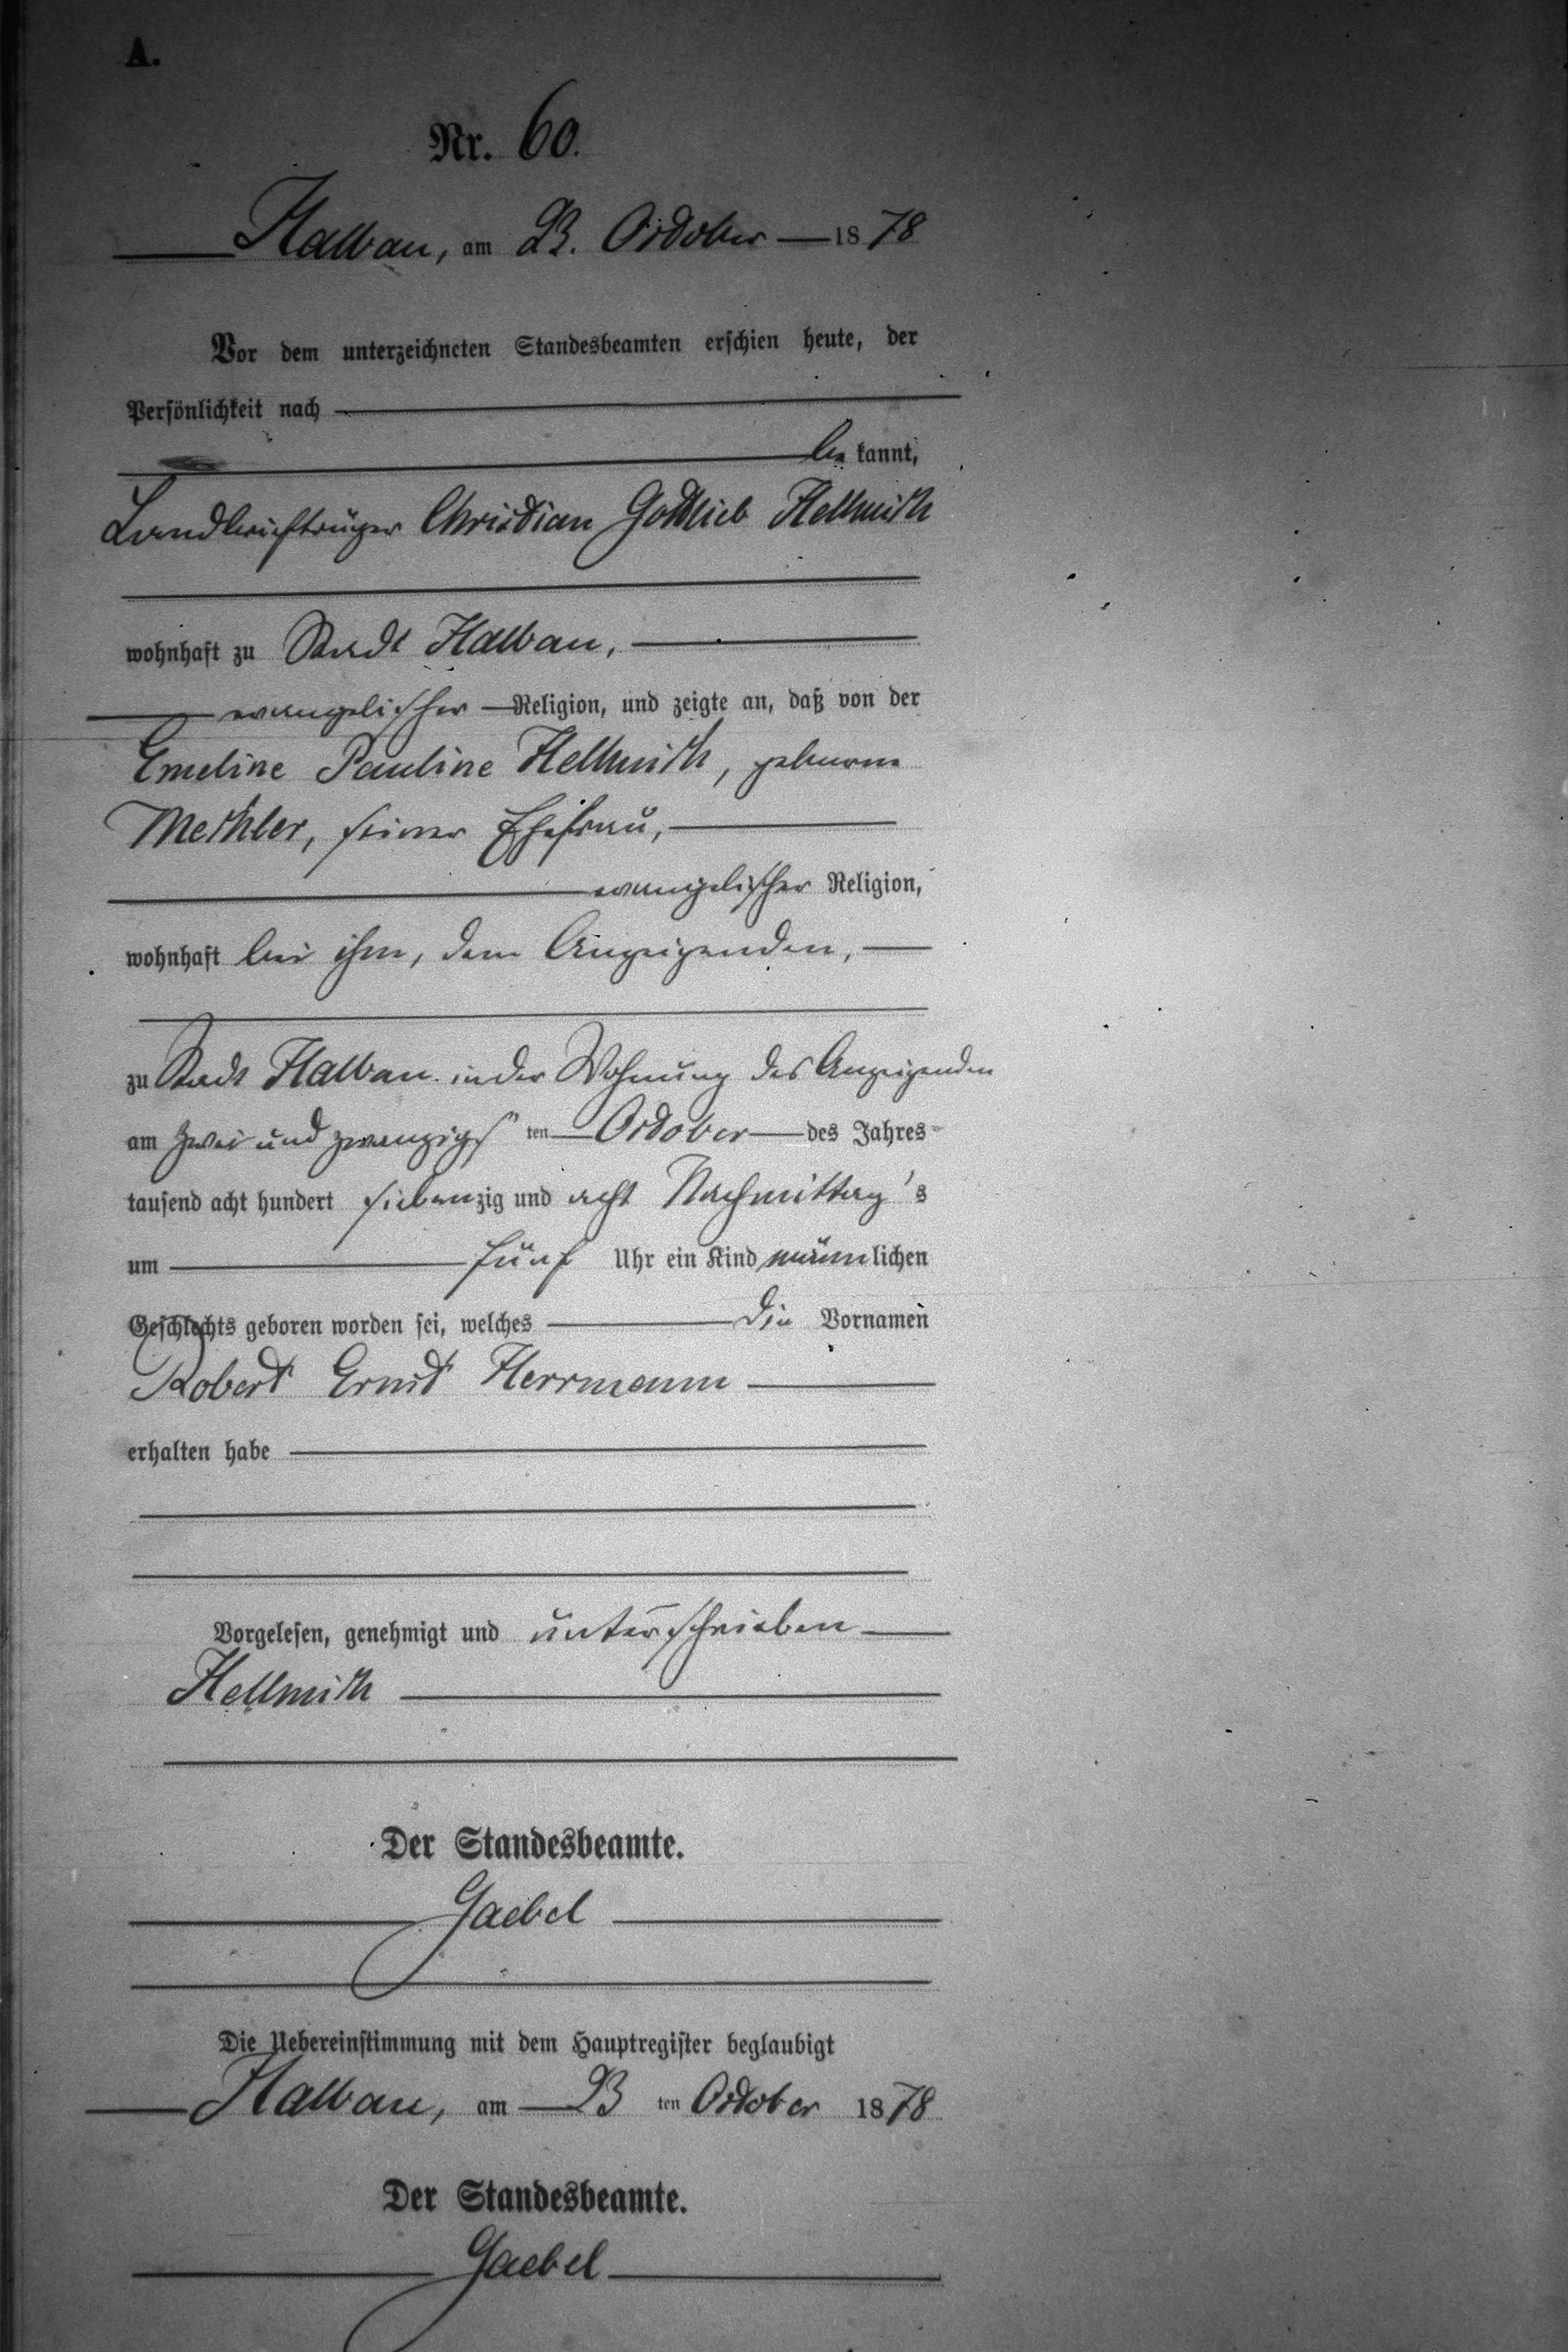 A.
Nr. 60.
Halbau, am 23. October 1878
Vor dem unterzeichneten Standesbeamten erschien heute, der
Persönlichkeit nach
be kannt,
Landbriefträger Christian Gottlieb Hellmith
wohnhaft zu Stadt Halbau,
evangelischer Religion, und zeigte an, daß von der
Emeline Pauline Hellmith, geborene
Methler, seiner Ehefrau,
evangelischer Religion,
wohnhaft bei ihm, dem Anzeigenden,
zu Stadt Halbau in der Wohnung des Anzeigenden
am zwei und zwanzigs ten October des Jahres
tausend acht hundert siebenzig und acht Nachmittag's
um fünf Uhr ein Kind männlichen
Geschlechts geboren worden sei, welches die Vornamen
Robert Ernst Herrmann
erhalten habe
Vorgelesen, genehmigt und unterschrieben
Hellmith
Der Standesbeamte.
Gaebel
Die Uebereinstimmung mit dem Hauptregister beglaubigt
Halbau, am 23 ten October 1878
Der Standesbeamte.
Gaebel